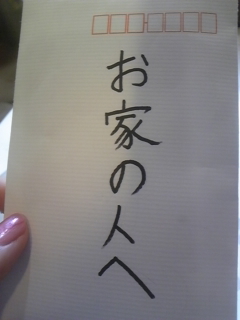 お家の人へ